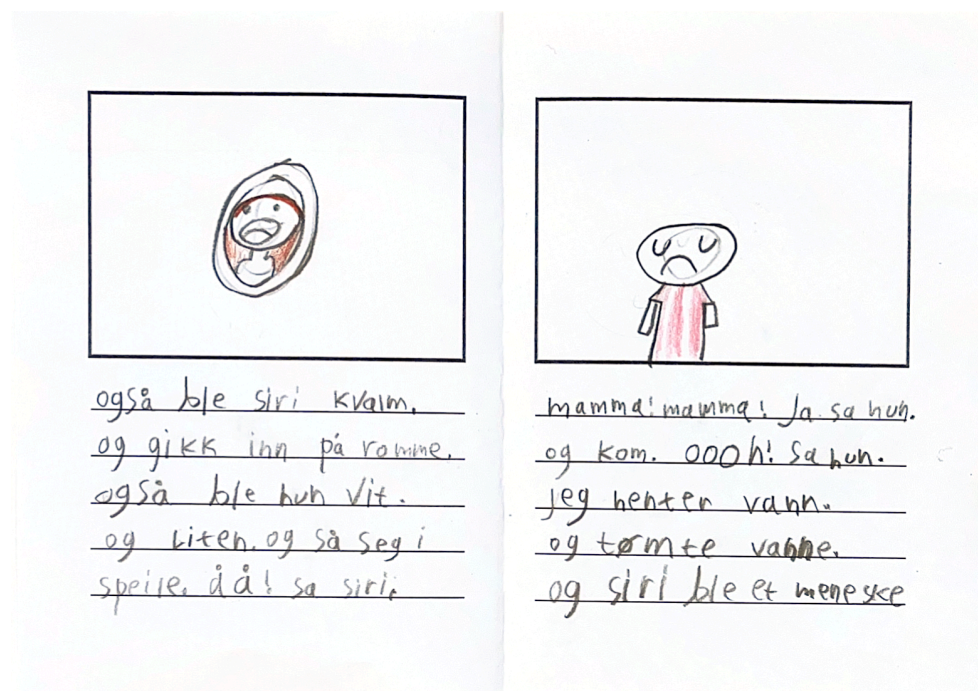 også ble siri kvalm.
og gikk inn på romme.
også ble hun vit.
og Liten. og så seg i
speile. åå! sa siri.
mamma! mamma! Ja. sa hun.
og kom. OOOh! sa hun.
jeg henter vann.
og tømte vanne.
og siri ble et meneske